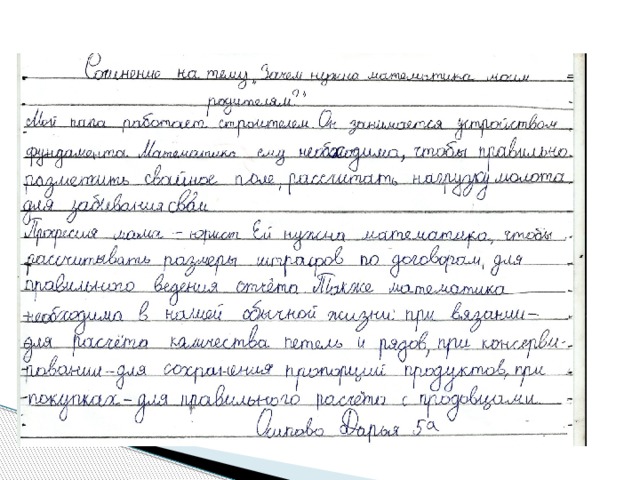 Сочинение на тему „Зачем нужна математика моим
родителям?“
Мой папа работает строителем. Он занимается устройством
фундамента. Математика ему необходима, чтобы правильно
разметить свайное поле, рассчитать нагрузку молота
для забивания свай
Профессия мамы – юрист. Ей нужна математика, чтобы
рассчитывать размеры штрафов по договорам, для
правильного ведения отчёта. Также математика
необходима в нашей обычной жизни: при вязании –
для расчёта количества петель и рядов, при консерви-
ровании – для сохранения пропорций продуктов, при
покупках – для правильного расчёта с продавцами.
Осипова Дарья 5а